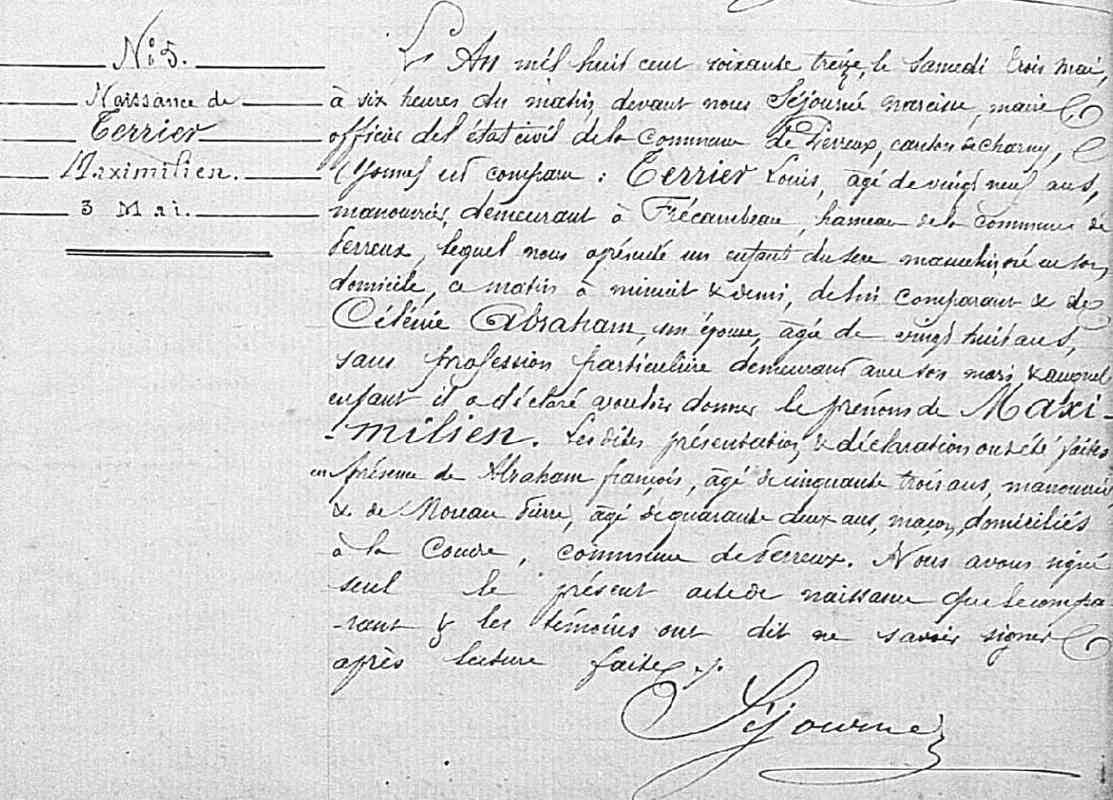 N° 5.
Naissance de
Terrier
Maximilien.
3 Mai.
L'An mil huit cent soixante treize, le samedi trois mai,
à six heures du matin, devant nous Séjourné Narcisse, maire &
officier de l'état civil de la commune de Perreux, canton de Charny,
(Yonne) est comparu : Terrier Louis, âgé de vingt neuf ans,
manouvrier, demeurant à Frécambeau, hameau de la commune de
Perreux, lequel nous a présenté un enfant du sexe masculin, né en son
domicile, ce matin à minuit & demi, de lui comparant & de
Célénie Abraham, son épouse, âgée de vingt huit ans,
sans profession particulière demeurant avec son mari, & auquel
enfant il a déclaré vouloir donner le prénom de Maxi-
-milien. Les dites présentation & déclaration ont été faites
en présence de Abraham françois, âgé de cinquante trois ans, manouvrier
& de Moreau Pierre, âgé de quarante deux ans, maçon, domiciliés
à la Coudre, commune de Perreux. Nous avons signé
seul le présent acte de naissance que le compa-
-rant & les témoins ont dit ne savoir signer
après lecture faite ./.
Séjourné